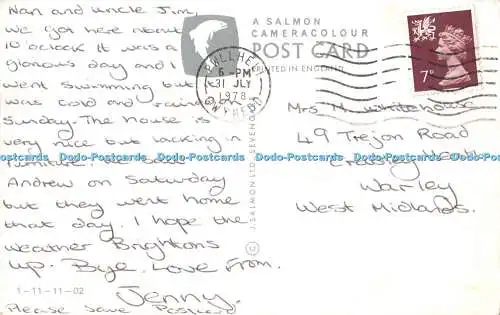 Nan and uncle Jim,
We got here about
10 o'clock it was a
glorious day and I
went swimming but
was cold and
Sunday. The house is
very nice but lacking in
furniture. We
Andrew on Saturday
but they went home
that day. I hope the
weather Brightons
up. Bye. Love From.
Jenny.
Please save Postcard
1-11-11-02
A SALMON
CAMERACOLOUR
POST CARD
PRINTED IN ENGLAND
J. SALMON LTD., SEVENOAKS
PWLLHELI
6 - PM
31 JLY
1978
GWYNEDD
7P
Mrs M. Whitehouse
49 Trejon Road
Cradley Heath
Warley
West Midlands.
Dado-Postcards Dado-Postcards Dado-Postcards Dado-Postcards Dado-Postcards